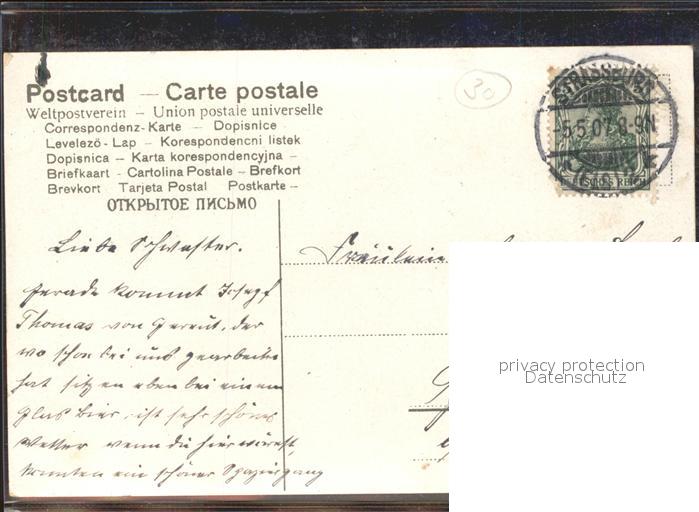 Postcard — Carte postale
Weltpostverein — Union postale universelle
Correspondenz-Karte — Dopisnice
Levelező-Lap — Korespondencni listek
Dopisnica — Karta korespondencyjna —
Briefkaart - Cartolina Postale — Brefkort
Brevkort Tarjeta Postal Postkarte —
ОТКРЫТОЕ ПИСЬМО
30
STRASSBURG
5.5.07. 8-9N
(ELS)
DEUTSCHES REICH
Liebe Schwester.
Fräulein
gerade kommt Josef
Thomas von Gereut, der
wo schon bei uns gearbeitet
hat sitzen eben bei einem
Glas Bier, ist sehr schönes
Wetter wenn du hier wärest,
könnten ein schöner Spaziergang
privacy protection
Datenschutz